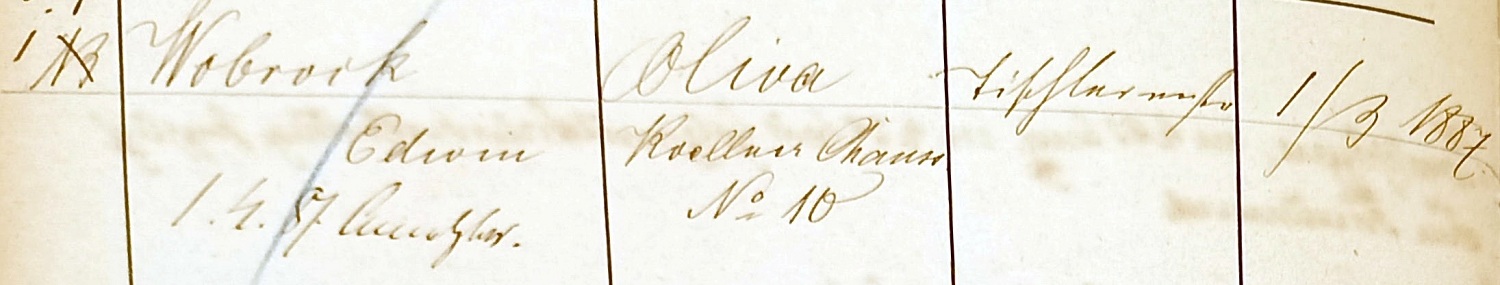 1 Wobrock Oliva Tischlermstr 1/3 1887.
Edwin Koellner Chauss
1.4.87 No 10